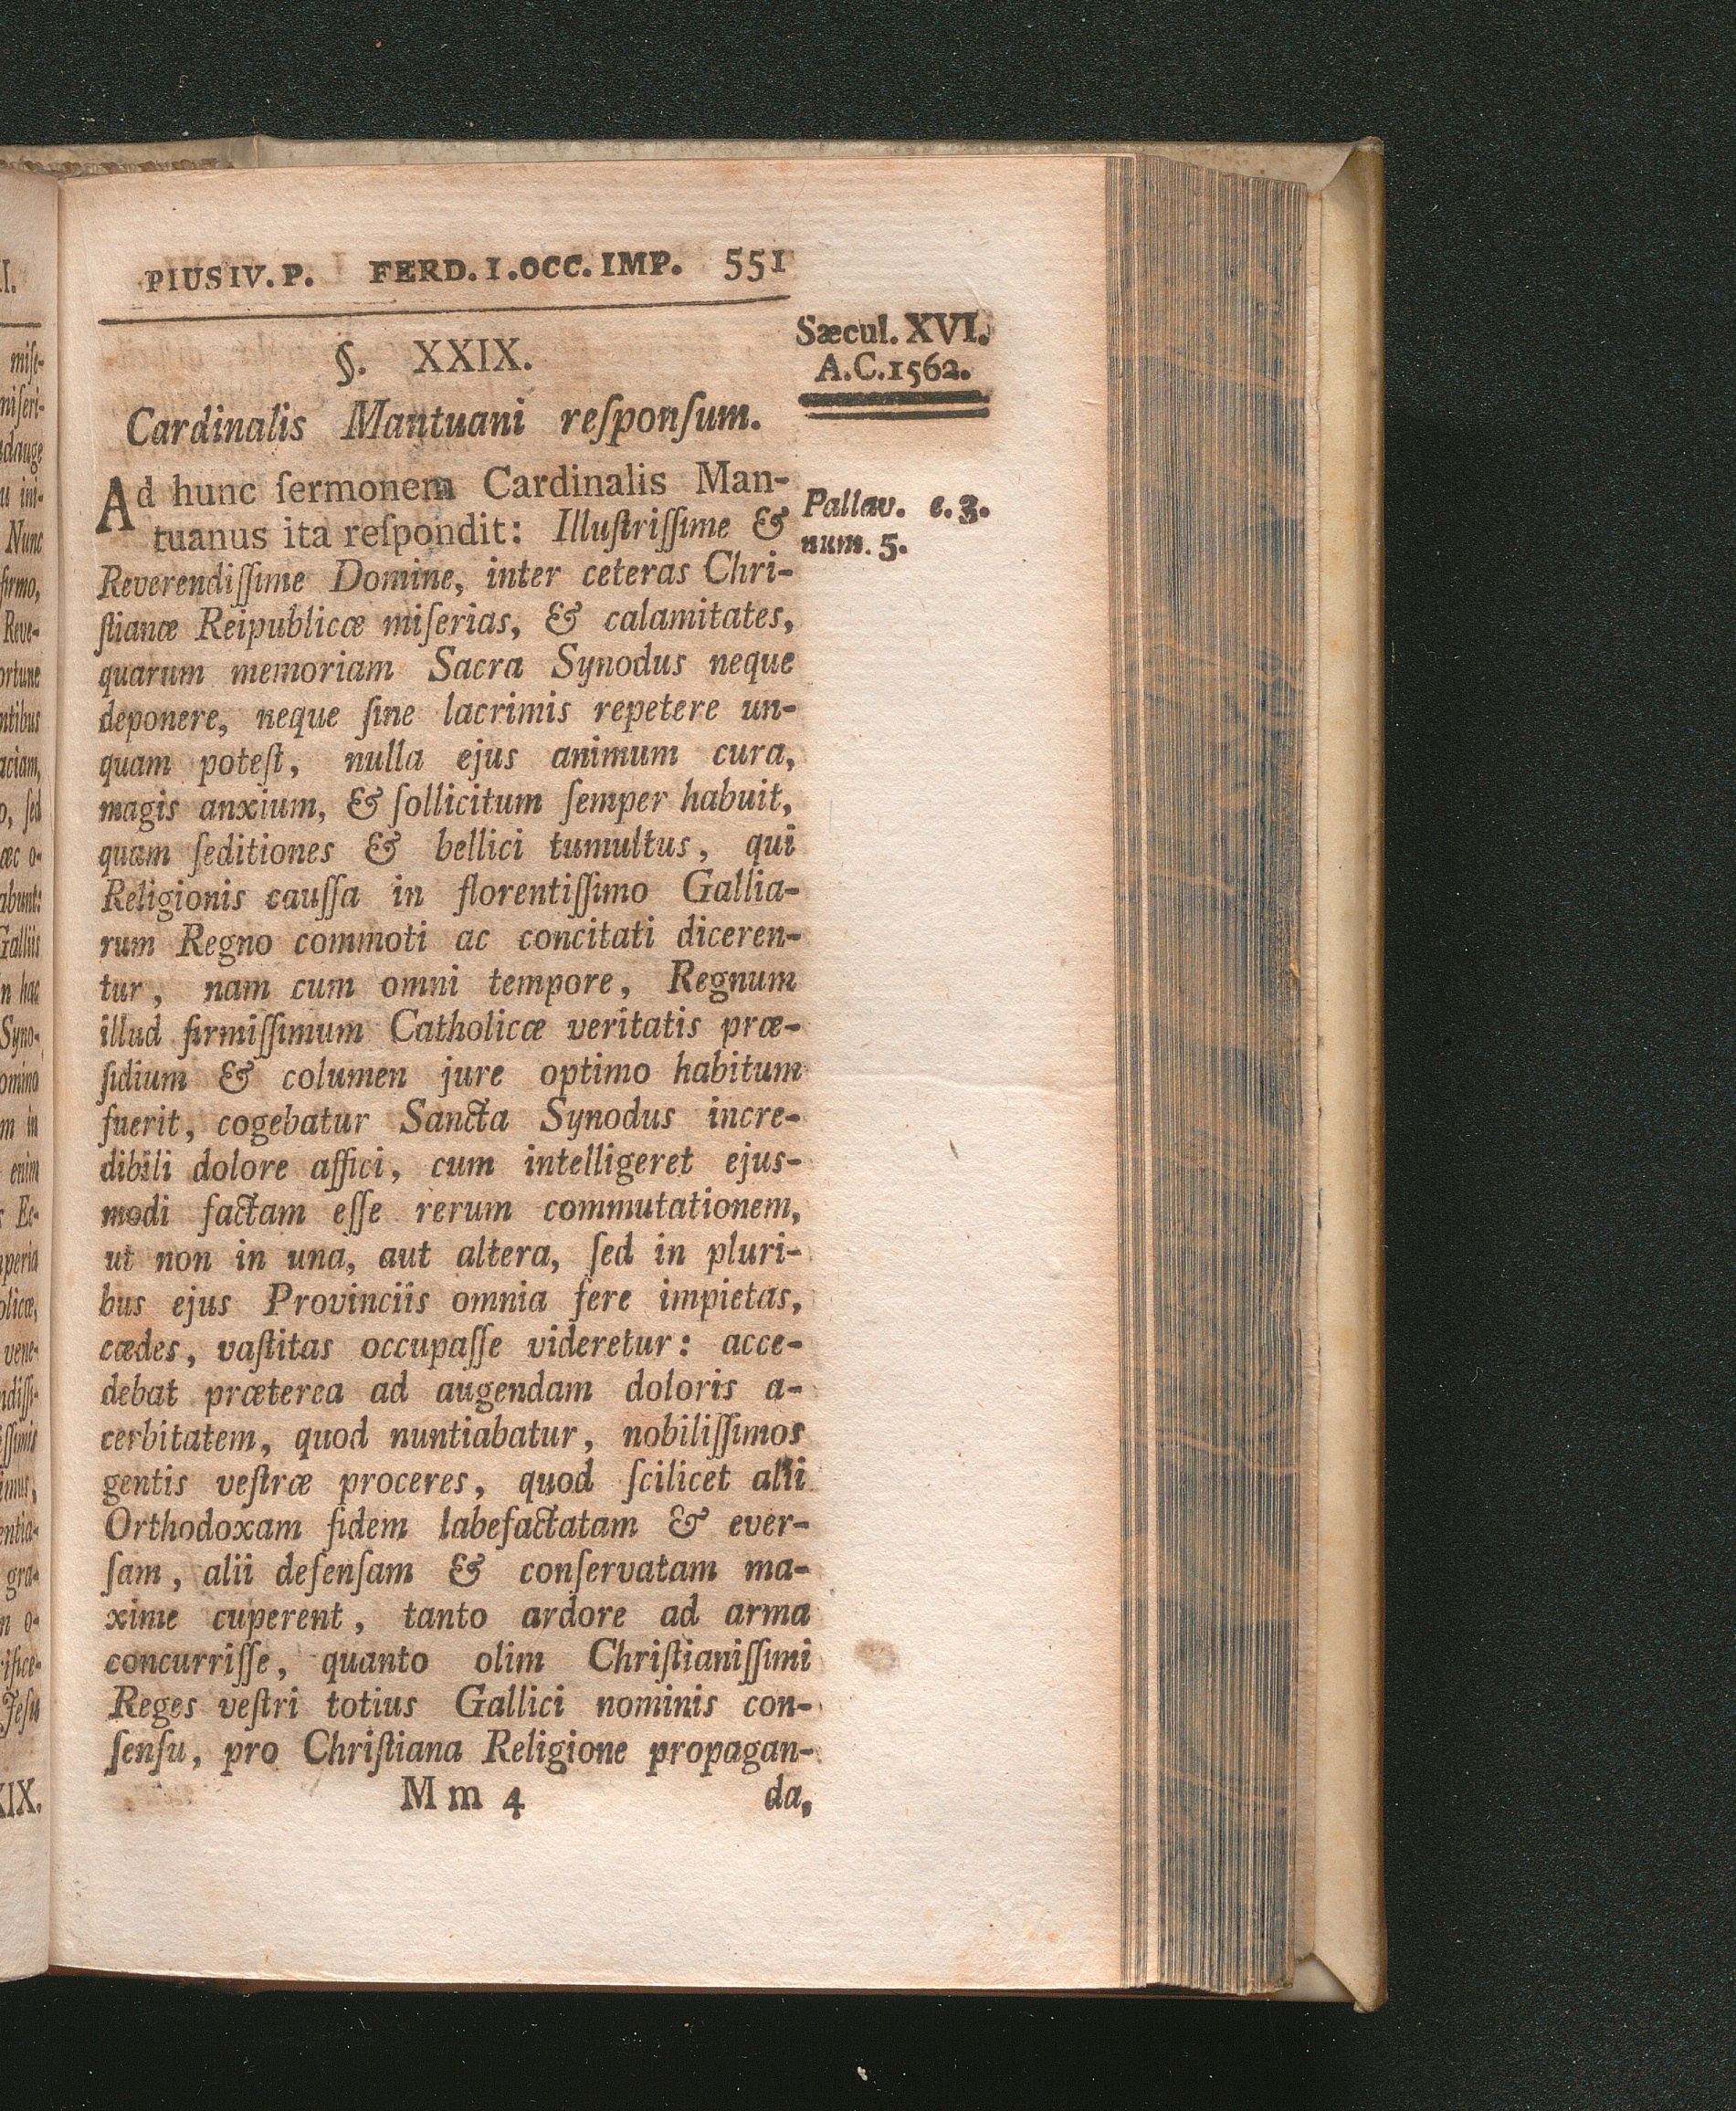 PIUS IV. P. FERD. I. OCC. IMP. 551
Sæcul. XVI.
A.C. 1562.
§. XXIX.
Cardinalis Mantuani reſponſum.
Ad hunc ſermonem Cardinalis Man-
tuanus ita reſpondit: Illuſtriſſime &
Pallav. c. 3.
num. 5.
Reverendiſſime Domine, inter ceteras Chri-
ſtianæ Reipublicæ miſerias, & calamitates,
quarum memoriam Sacra Synodus neque
deponere, neque ſine lacrimis repetere un-
quam poteſt, nulla ejus animum cura,
magis anxium, & ſollicitum ſemper habuit,
quam ſeditiones & bellici tumultus, qui
Religionis cauſſa in florentiſſimo Gallia-
rum Regno commoti ac concitati diceren-
tur, nam cum omni tempore, Regnum
illud firmiſſimum Catholicæ veritatis præ-
ſidium & columen jure optimo habitum
fuerit, cogebatur Sancta Synodus incre-
dibili dolore affici, cum intelligeret ejus-
modi factam eſſe rerum commutationem,
ut non in una, aut altera, ſed in pluri-
bus ejus Provinciis omnia fere impietas,
cædes, vaſtitas occupaſſe videretur: acce-
debat præterea ad augendam doloris a-
cerbitatem, quod nuntiabatur, nobiliſſimos
gentis veſtræ proceres, quod ſcilicet alii
Orthodoxam fidem labefactatam & ever-
ſam, alii defenſam & conſervatam ma-
xime cuperent, tanto ardore ad arma
concurriſſe, quanto olim Chriſtianiſſimi
Reges veſtri totius Gallici nominis con-
ſenſu, pro Chriſtiana Religione propagan-
M m 4 da,